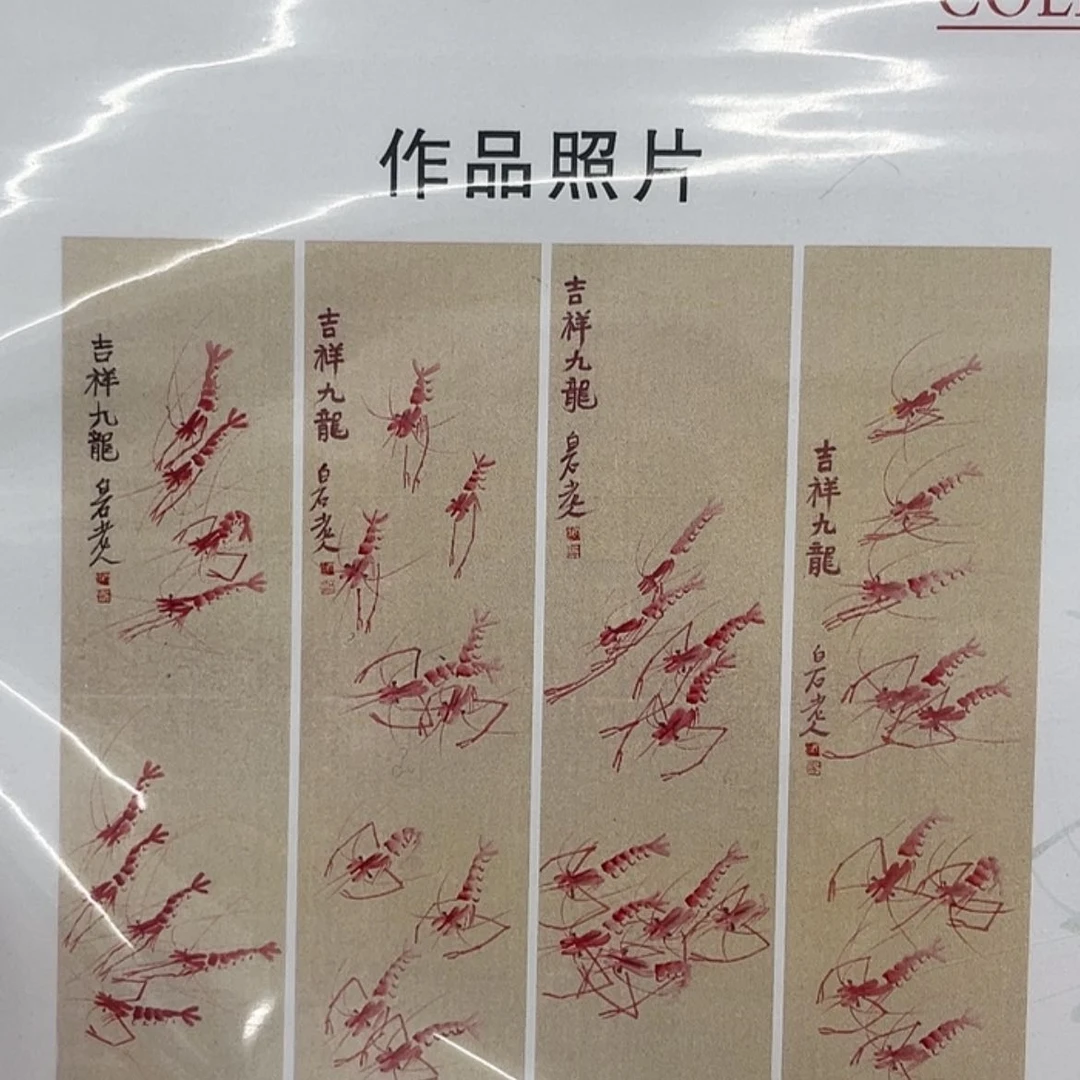 COL
作品照片
吉祥九龍
白石老人
吉祥九龍
白石老人
吉祥九龍
白石老人
吉祥九龍
白石老人